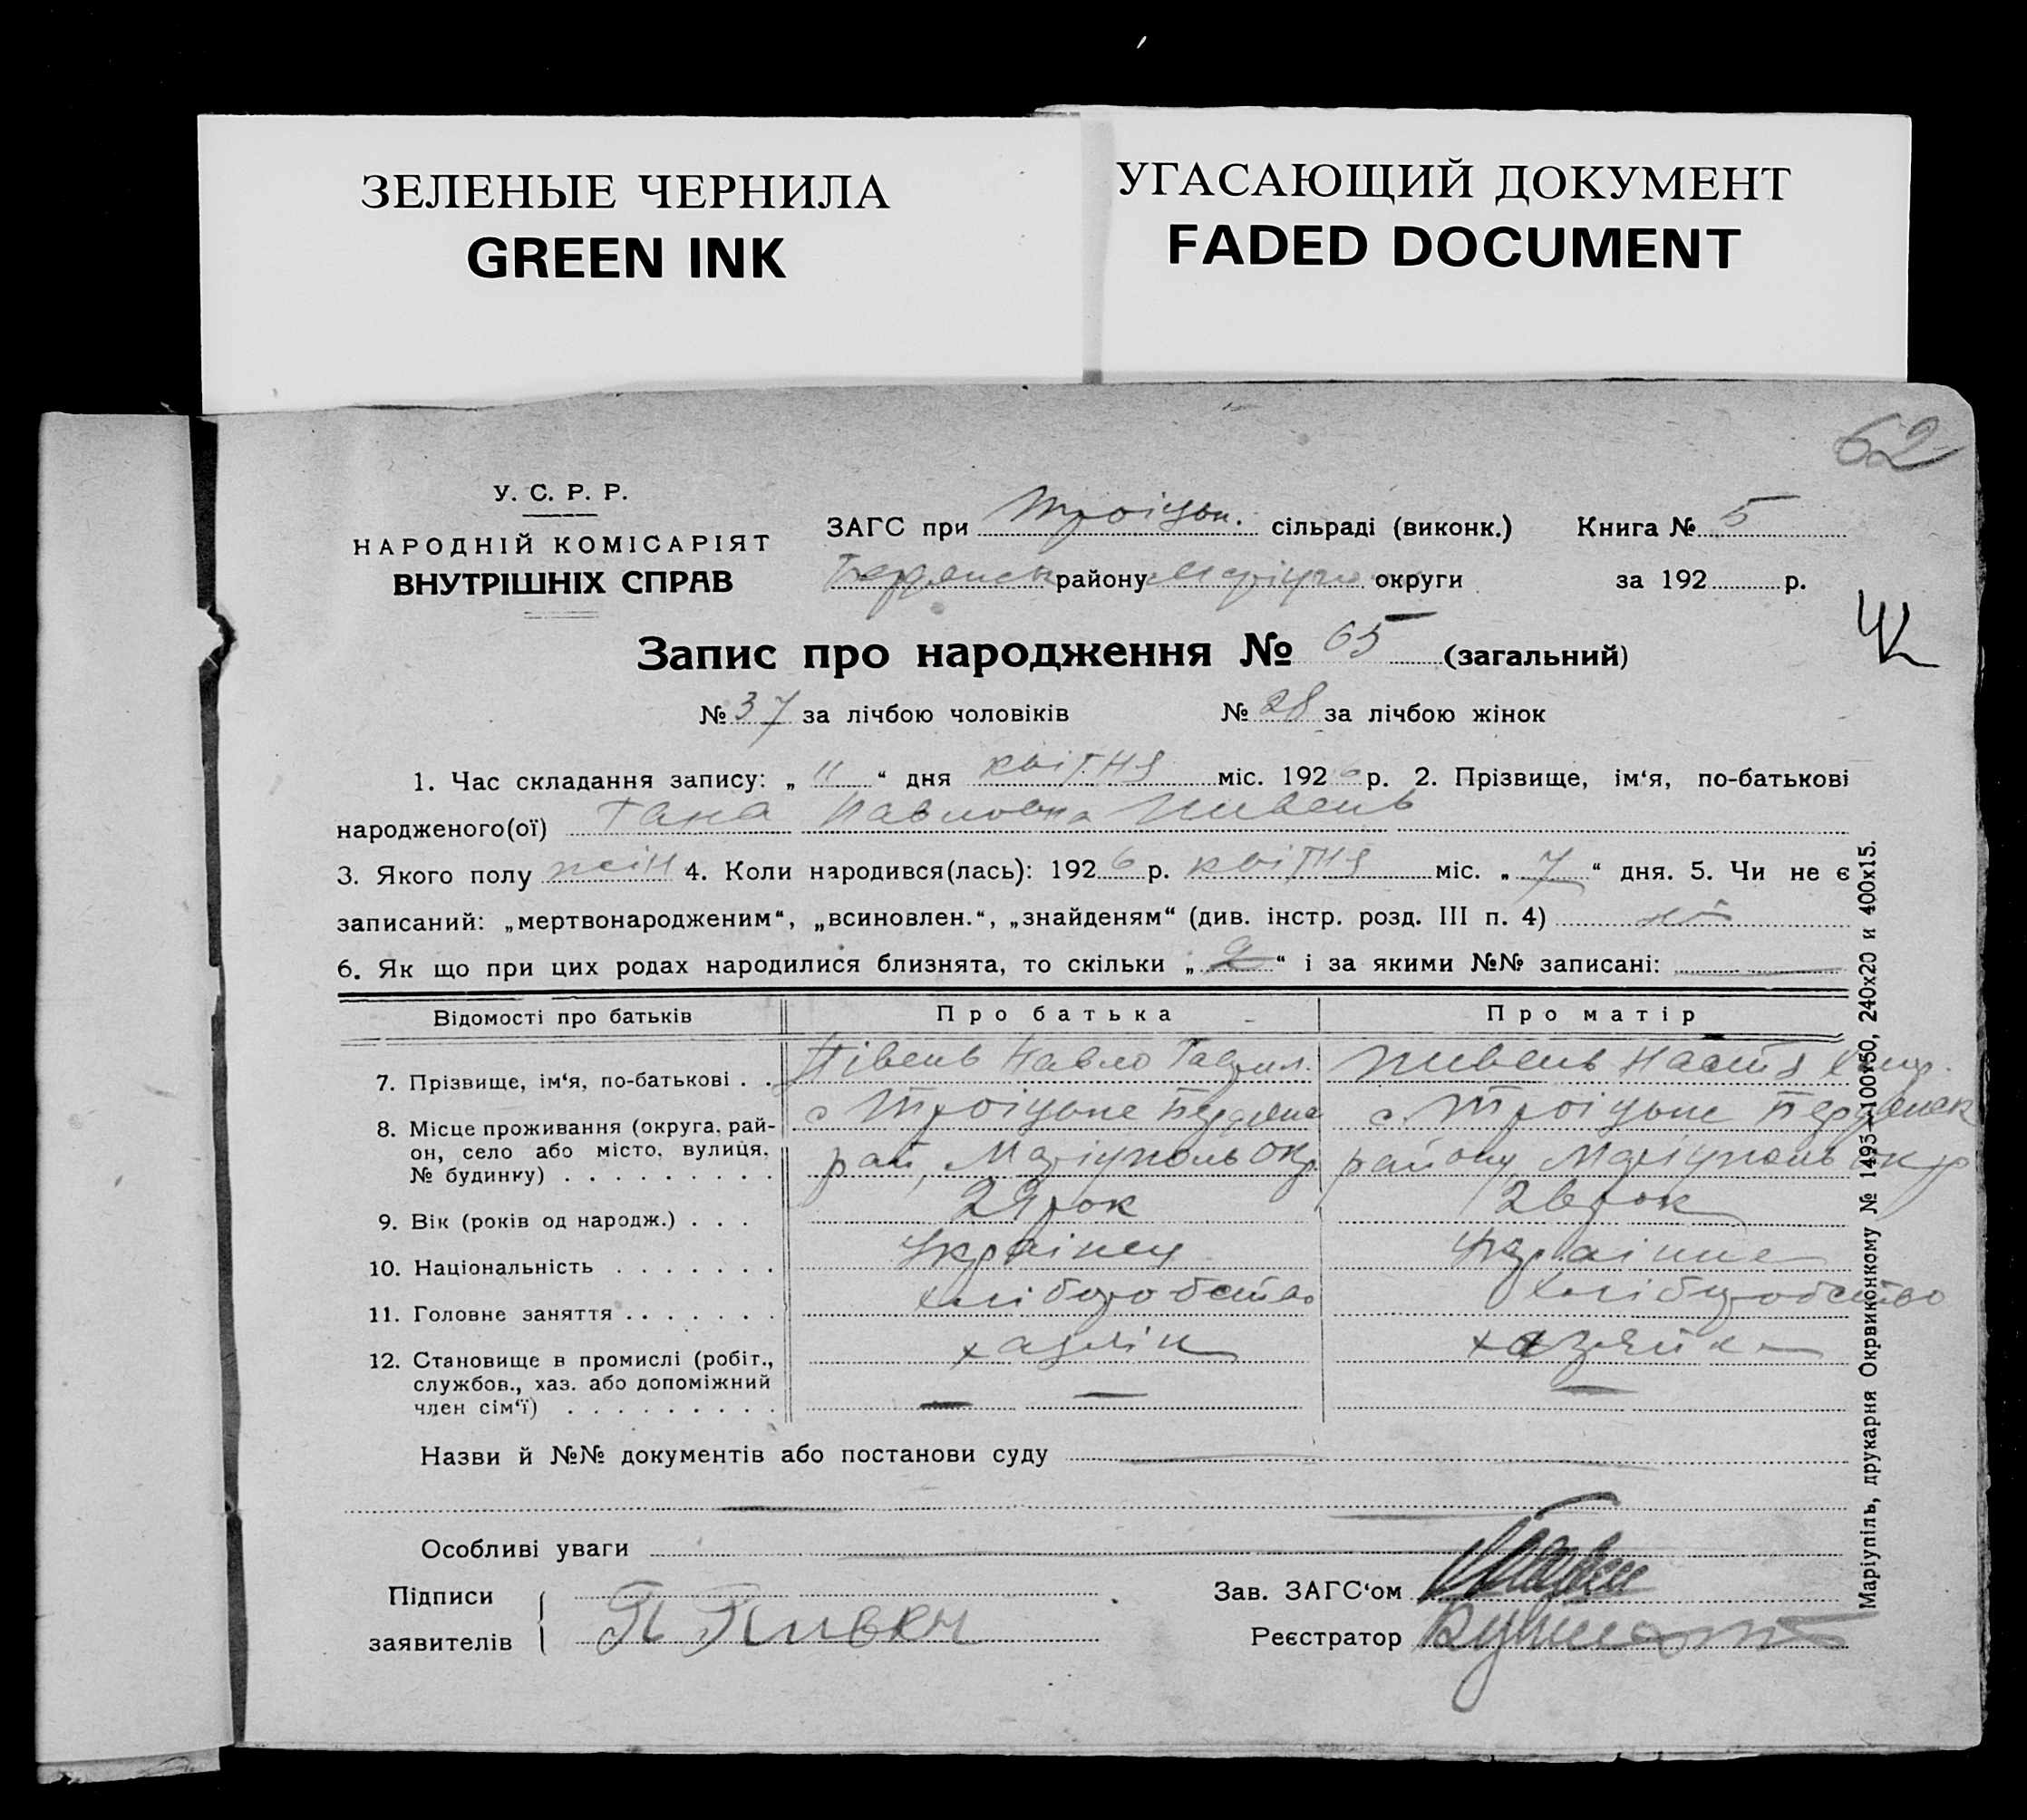 ЗЕЛЕНЫЕ ЧЕРНИЛА
GREEN INK
УГАСАЮЩИЙ ДОКУМЕНТ
FADED DOCUMENT
62
У. С. Р. Р.
НАРОДНІЙ КОМІСАРІЯТ
ВНУТРІШНІХ СПРАВ
ЗАГС при Троіцьк. сільраді (виконк.) Книга № 5
Бердянськ району Маріуп округи за 192 р.
Запис про народження № 65 (загальний)
№ 37 за лічбою чоловіків № 28 за лічбою жінок
1. Час складання запису: „ 11 “ дня квітня міс. 1926 р. 2. Прізвище, ім‘я, по-батькові
народженого(ої) Гана Павловна Пивень
3. Якого полу жін 4. Коли народився(лась): 1926 р. квітня міс. „ 7 “ дня. 5. Чи не є
записаний: „мертвонародженим“, „всиновлен.“, „знайденям“ (див. інстр. розд. III п. 4) ні
6. Як що при цих родах народилися близнята, то скільки „ “ і за якими №№ записані:
Відомості про батьків Про батька Про матір
7. Прізвище, ім‘я, по-батькові . . Півень Павло Гаврил. Пивень Настя
8. Місце проживання (округа, рай- с Троіцьке Бердянс с. Троіцьке Бердянск
он, село або місто, вулиця, рай, Маріуполь Окр. району Маріуполь окр
№ будинку) . . . . . . . . .
9. Вік (років од народж.) . . . 29 рок 26 рок
10. Національність . . . . . . . Украінец Украінце
11. Головне заняття . . . . . . . хліборобство хліборобство
12. Становище в промислі (робіт., хазяін хазяйка
службов., хаз. або допоміжний
член сім‘ї) . . . . . . . . .
Назви й №№ документів або постанови суду
Особливі уваги
Підписи
заявителів П Пивен
Зав. ЗАГС‘ом
Реєстратор
Маріупіль, друкарня Окрвиконкому № 1495—100х50, 240х20 и 400х15.